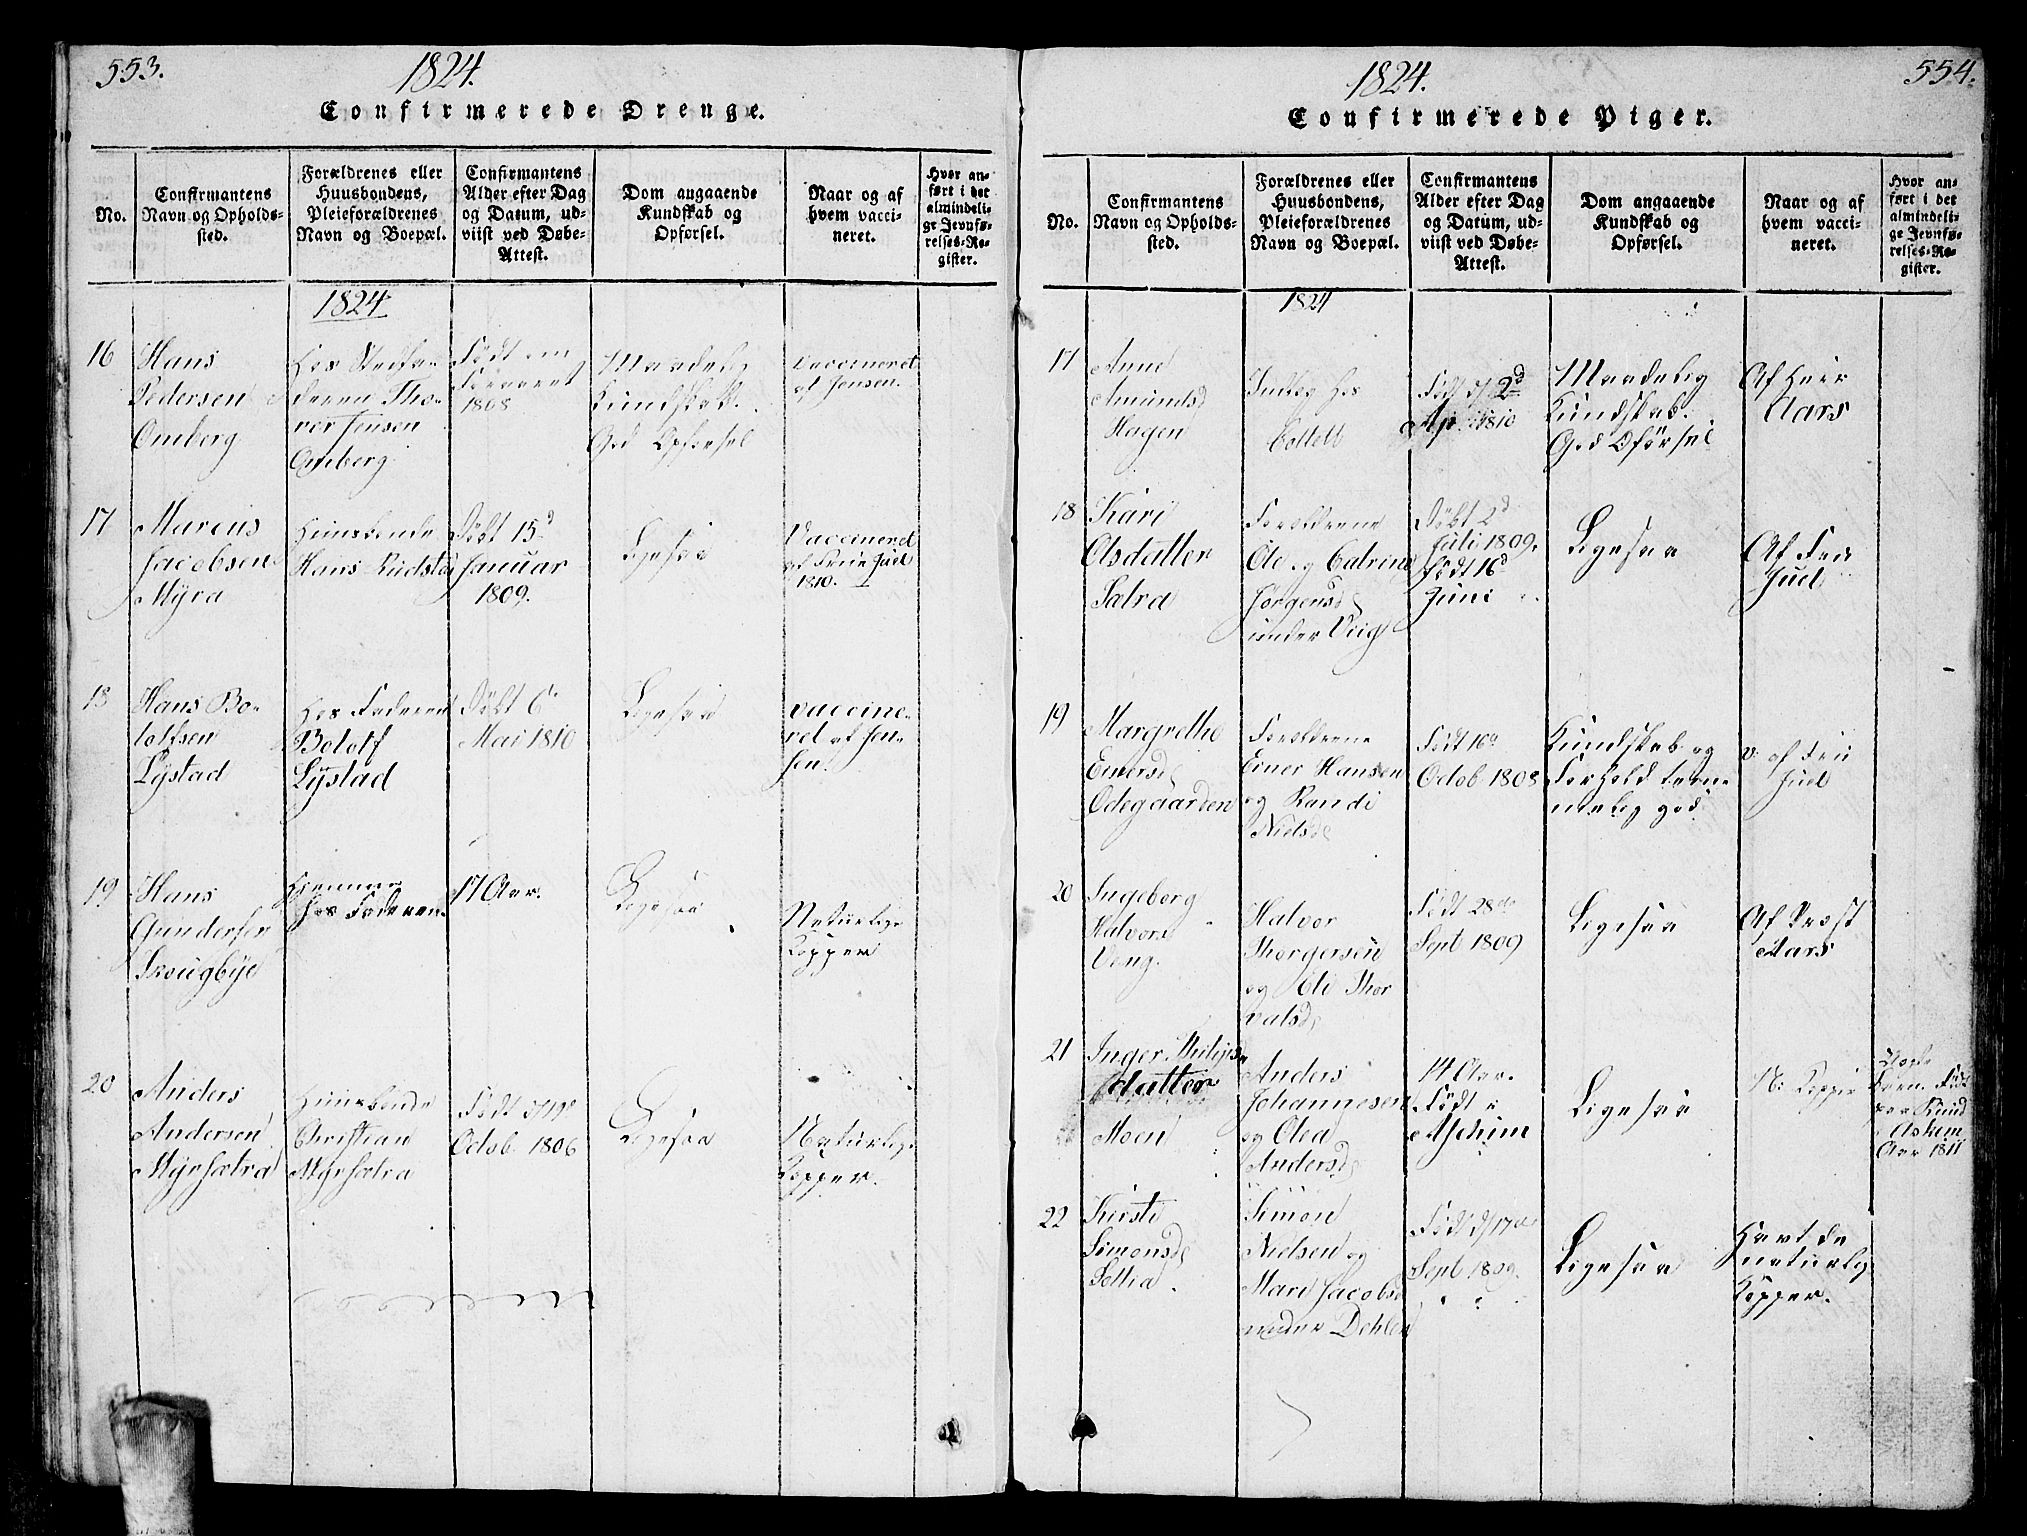 553.
1824.
Confirmerede Drenge.
No.
Confirmantens
Navn og Opholds-
sted.
Forældrenes eller
Huusbondens,
Pleieforældrenes
Navn og Boepæl.
Confirmantens
Alder efter Dag
og Datum, ud-
viist ved Døbe-
Attest.
Dom angaaende
Kundskab og
Opførsel.
Naar og af
hvem vacci-
neret.
Hvor an-
ført i det
almindeli-
ge Jevnfø-
relses-Re-
gister.
1824
16
Hans
Pedersen
Omberg
Hos Stedfa-
deren Tho-
ver Jensen
Omberg
Født om
Foraaret
1808
Maadelig
Kundskab.
God Opførsel
Vaccineret
af Jensen.
17
Marcus
Jacobsen
Myra
Huusbonde
Hans Rudstu
Døbt 15d
Januar
1809.
Ligesaa
Vaccinered
af Frue Juel
1810.
18
Hans Bo-
lolfsen
Lystad
Hos Faderen
Bolotf
Lystad
Døbt 6
Mai 1810
Ligesaa
vaccine-
ret af Jen-
sen.
19
Hans
Gundersen
Skougbye
Hiemme
hos Faderen.
17 Aar.
Ligesaa
Naturlige
Kopper
20
Anders
Andersen
Myrsætra
Huusbonde
Christian
Myrsætra
Født d 19de
Octob. 1806
Ligesaa
Naturlige
Kopper.
554.
1824.
Confirmerede Piger.
No.
Confirmantens
Navn og Opholds-
sted.
Forældrenes eller
Huusbondens,
Pleieforældrenes
Navn og Boepæl.
Confirmantens
Alder efter Dag
og Datum, ud-
viist ved Døbe-
Attest.
Dom angaaende
Kundskab og
Opførsel.
Naar og af
hvem vacci-
neret.
Hvor an-
ført i det
almindeli-
ge Jevnfø-
relses-Re-
gister.
1824
17
Anne
Amunds
Hagen
hos
Collett
Født d 2d
April 1810
Maadelig
Kundskab.
God Oførsel
Af Herr
Aars
18
Kari
Olsdatter
Sætra
Forældrene
Ole og Catrine
Jørgensd
under Viig
Døbt 2d
Juli 1809.
født 16d
Juni
Ligesaa
Af Frue
Juel
19
Margrethe
Einersd
Odegaarden
Forældrene
Einer Hansen
og Randi
Nielsd
Født 16d
Octob 1808
Kundskab og
Forhold tem-
melig god
v. af Fru
Juel
20
Ingeborg
Halvors
Veng.
Halvor
Thorgersen
og Eli Thor
valsd
Født 28de
Sept 1809
Ligesaa
Af Prost
Aars
21
Inger Philips
datter
Moen
Anders
Johannesen
og Olea
Andersd
14 Aar.
Født i
Aschim
Ligesaa
N: Kopper
Askim
Aar 1811
22
Kirsti
Simonsd
Sættra.
Simon
Nielsen og
Mari Jacobsd
under Dehlen
Født d 17de
Sept 1809.
Ligesaa
Havt de
naturlig
Kopper.